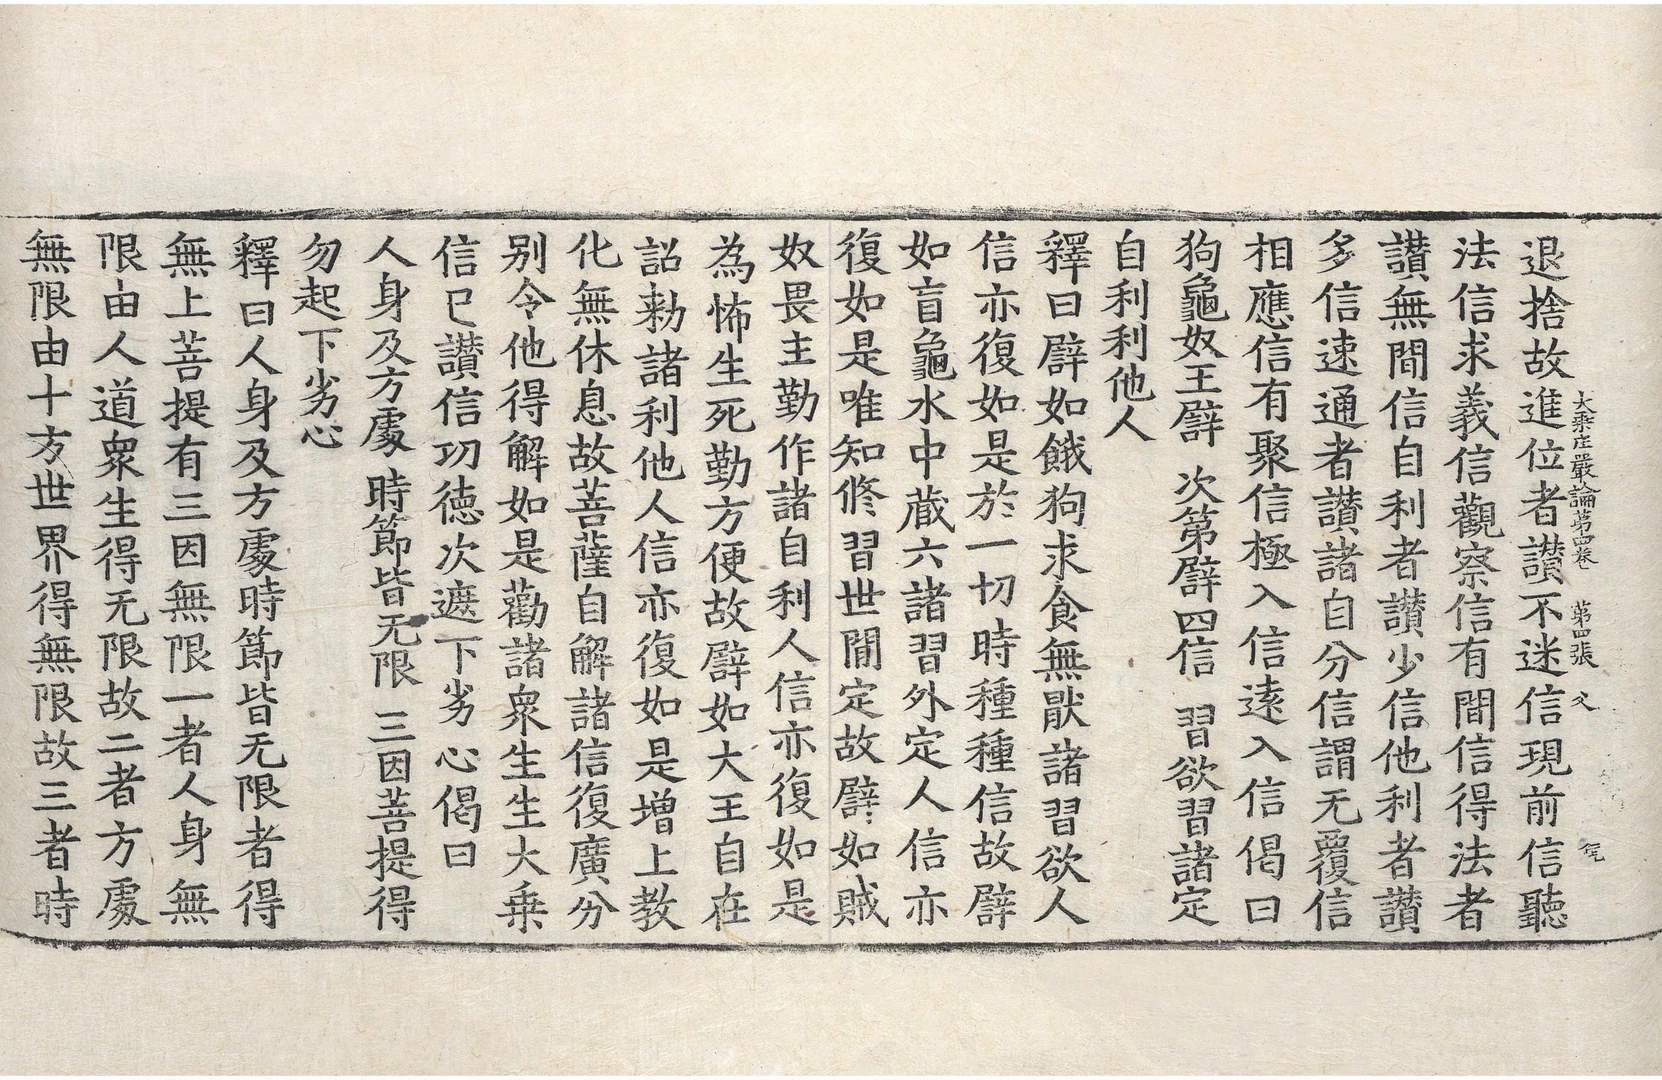 大乘庄嚴論第四卷 第四張 父
退捨故進位者讃不迷信現前信聽
法信求義信觀察信有間信得法者
讃無間信自利者讃少信他利者讃
多信速通者讃諸自分信謂无覆信
相應信有聚信極入信遠入信偈曰
狗龜奴王譬 次第譬四信 習欲習諸定
自利利他人
釋曰譬如餓狗求食無猒諸習欲人
信亦復如是於一切時種種信故譬
如盲龜水中蔵六諸習外定人信亦
復如是唯知修習世間定故譬如賊
奴畏主勤作諸自利人信亦復如是
為怖生死勤方便故譬如大王自在
詔勑諸利他人信亦復如是增上教
化無休息故菩薩自解諸信復廣分
別令他得解如是勸諸衆生生大乗
信已讃信功徳次遮下劣心偈曰
人身及方處 時節皆无限 三因菩提得
勿起下劣心
釋曰人身及方處時節皆无限者得
無上菩提有三因無限一者人身無
限由人道衆生得无限故二者方處
無限由十方世界得無限故三者時